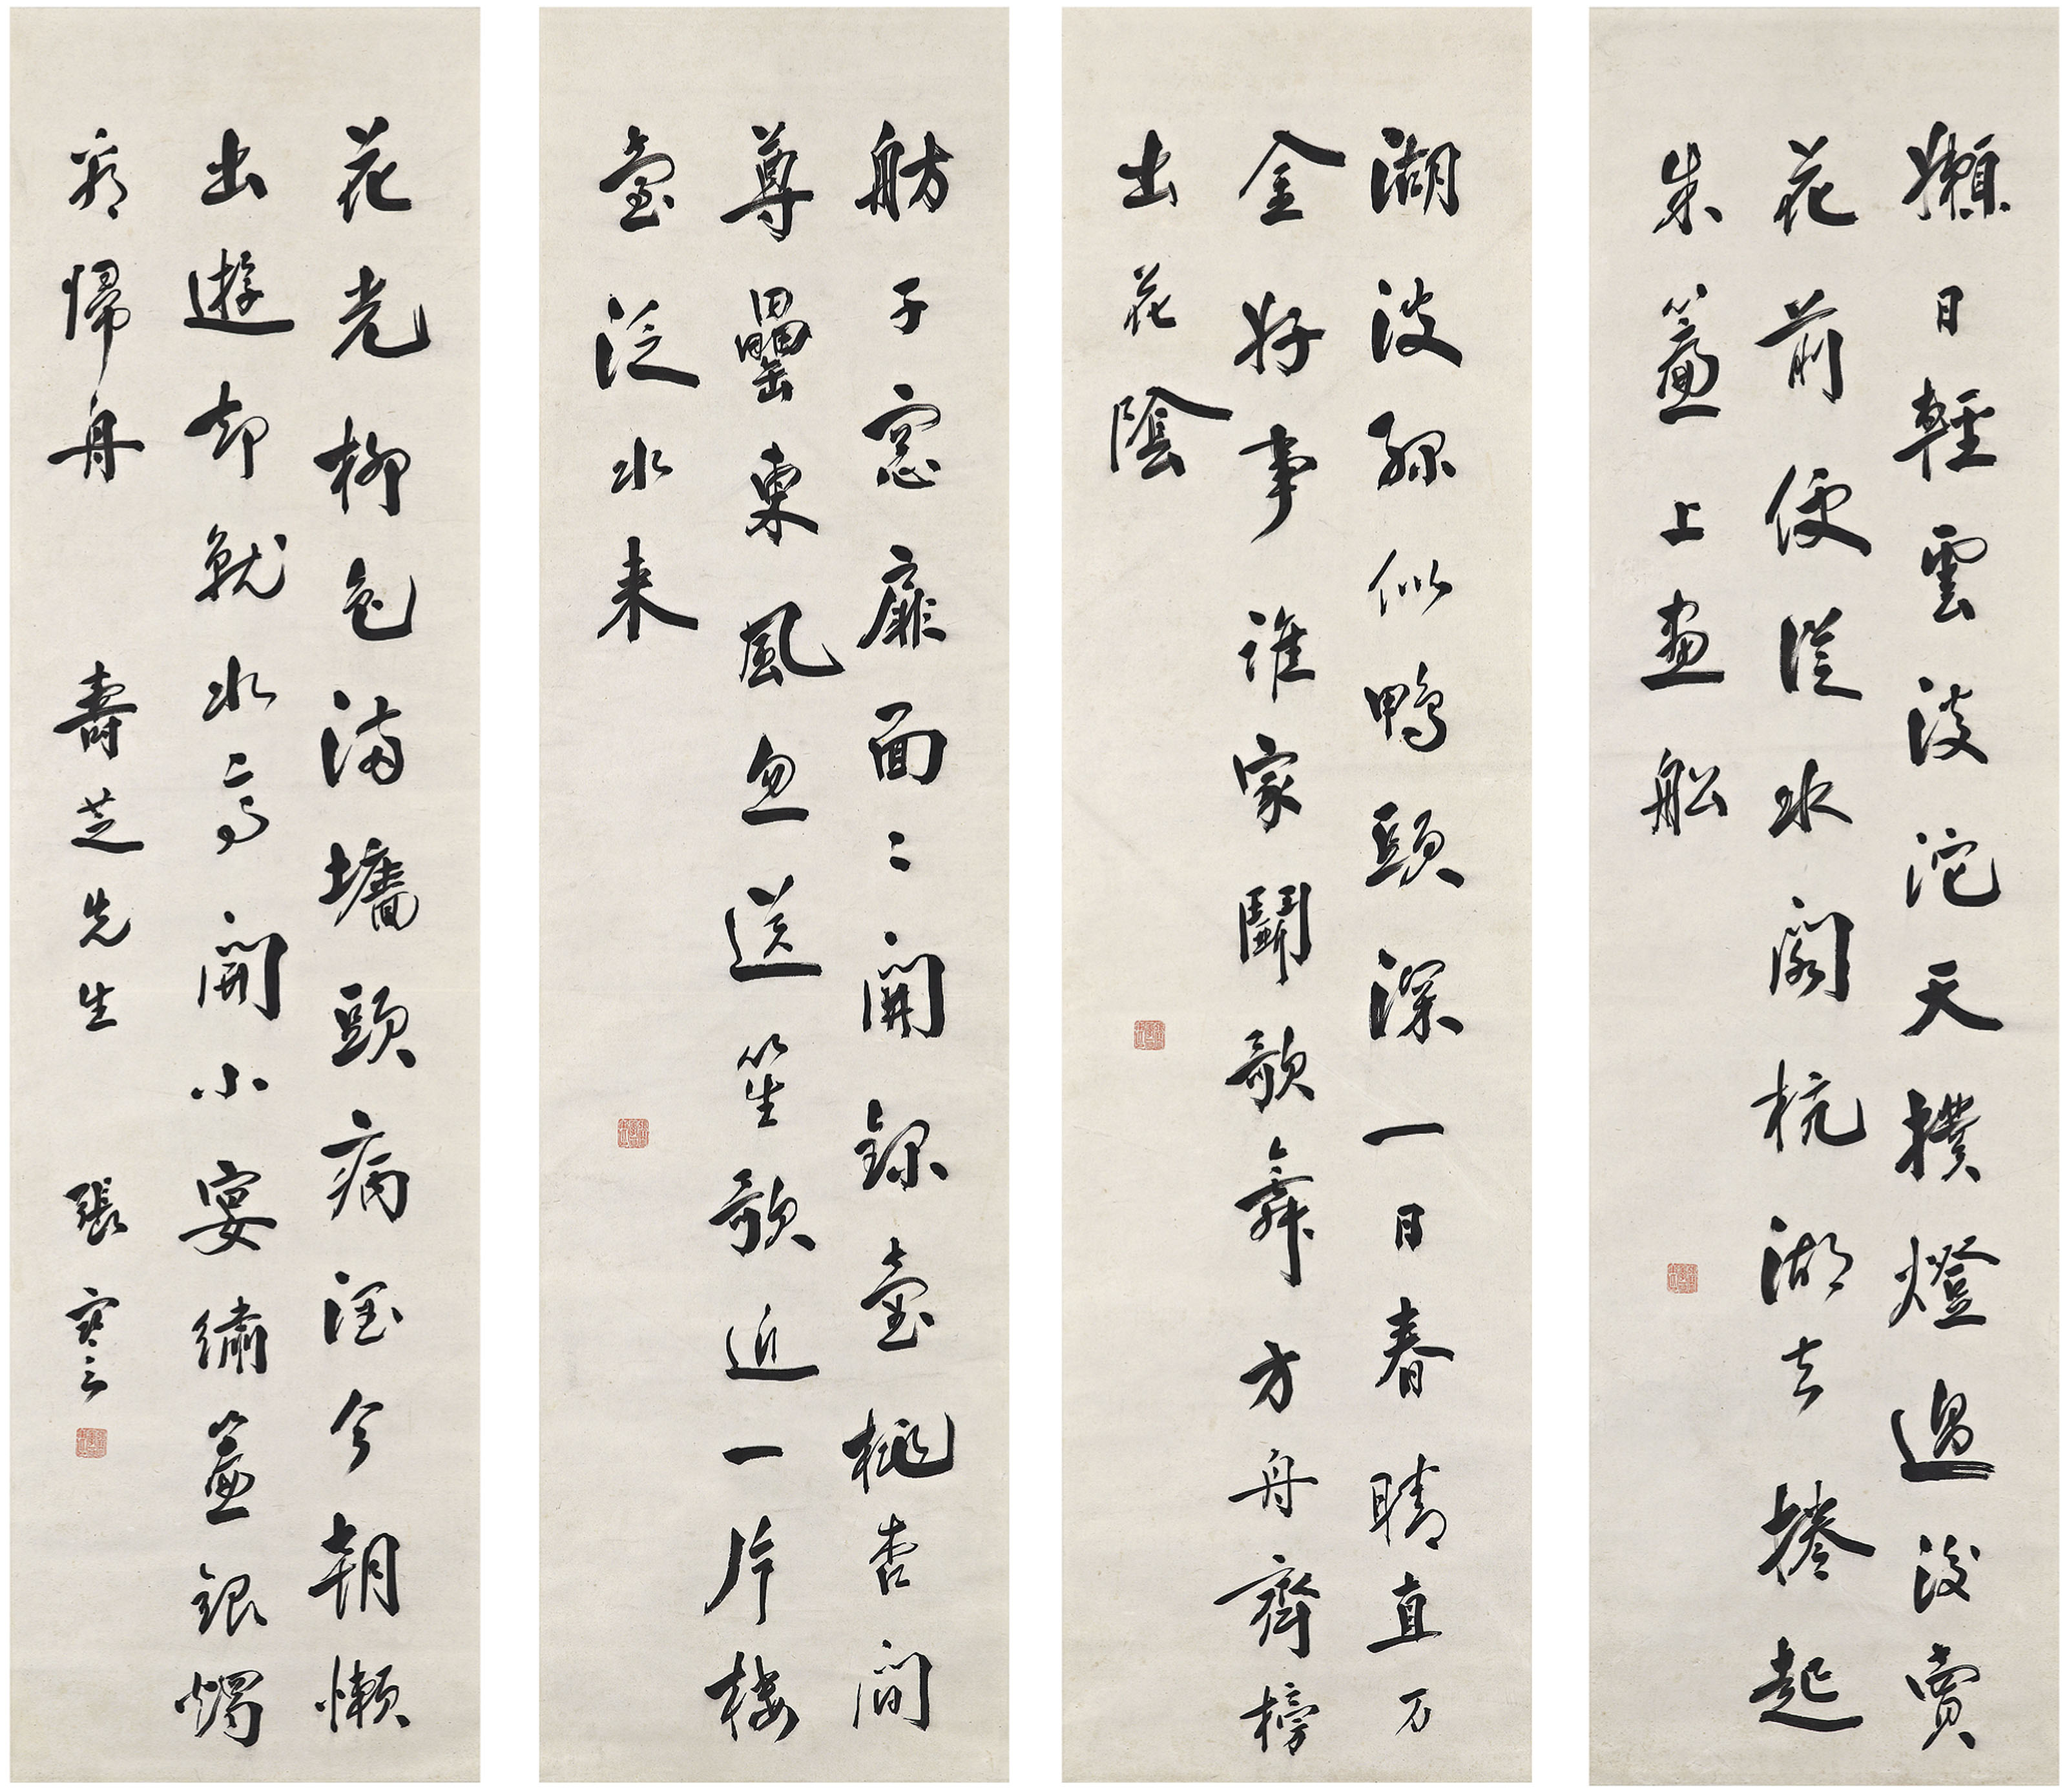 嬾日輕雲淡沱天撲燈過後賣
花前便從水閣杭湖去捲起
朱簾上畫船
湖波綠似鴨頭深一日春晴直万
金好事誰家鬭歌舞方舟齊榜
出花陰
舫子窓扉面々開臺桃杏間
尊罍東風忽送笙歌近一片樓
臺泛水来
花光柳色滿墻頭病酒今朝懶
出遊却就水亭開小宴繡簾銀燭
看歸舟 壽芝先生 張謇